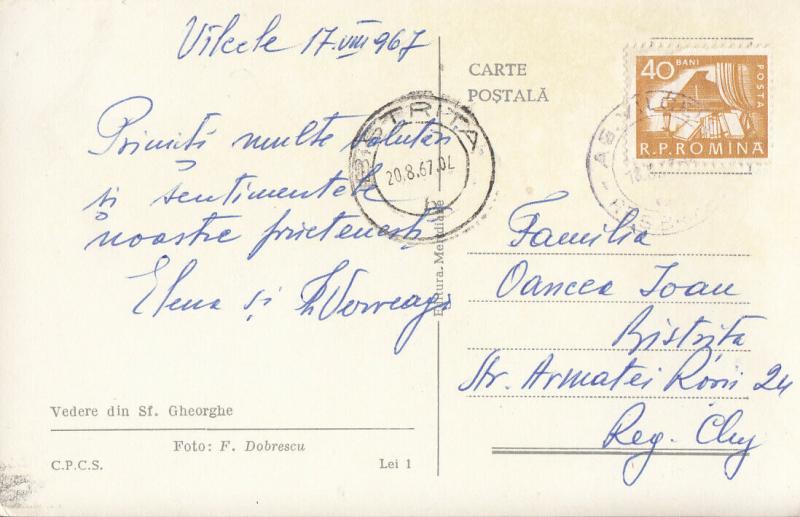 Vîlcele 17.VIII 967
Primiți multe salutări
și sentimentele
noastre frietenești
Elena și
Vedere din Sf. Gheorghe
Foto: F. Dobrescu
C.P.C.S. Lei 1
Editura Meridiane
CARTE
POȘTALĂ
BISTRIȚA
20.8.67.02
40 BANI
POSTA
R.P.ROMINA
Familia
Oancea Ioan
Bistrița
Str. Armatei Roșii 24
Reg. Cluj